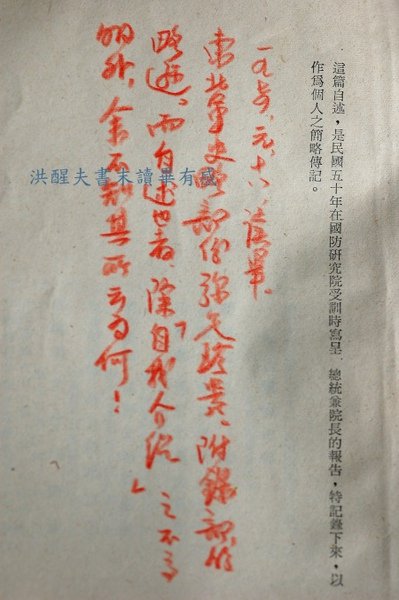 這篇自述，是民國五十年在國防研究院受訓時寫呈　總統兼院長的報告，特記錄下來，以
作爲個人之簡略傳記。
讀畢、
東北軍史略部份彌足珍貴、附錄部份
略遜、而自述也者、除「自我介紹」之不高
明外、余不知其所云為何！
洪醒夫書末讀畢有感